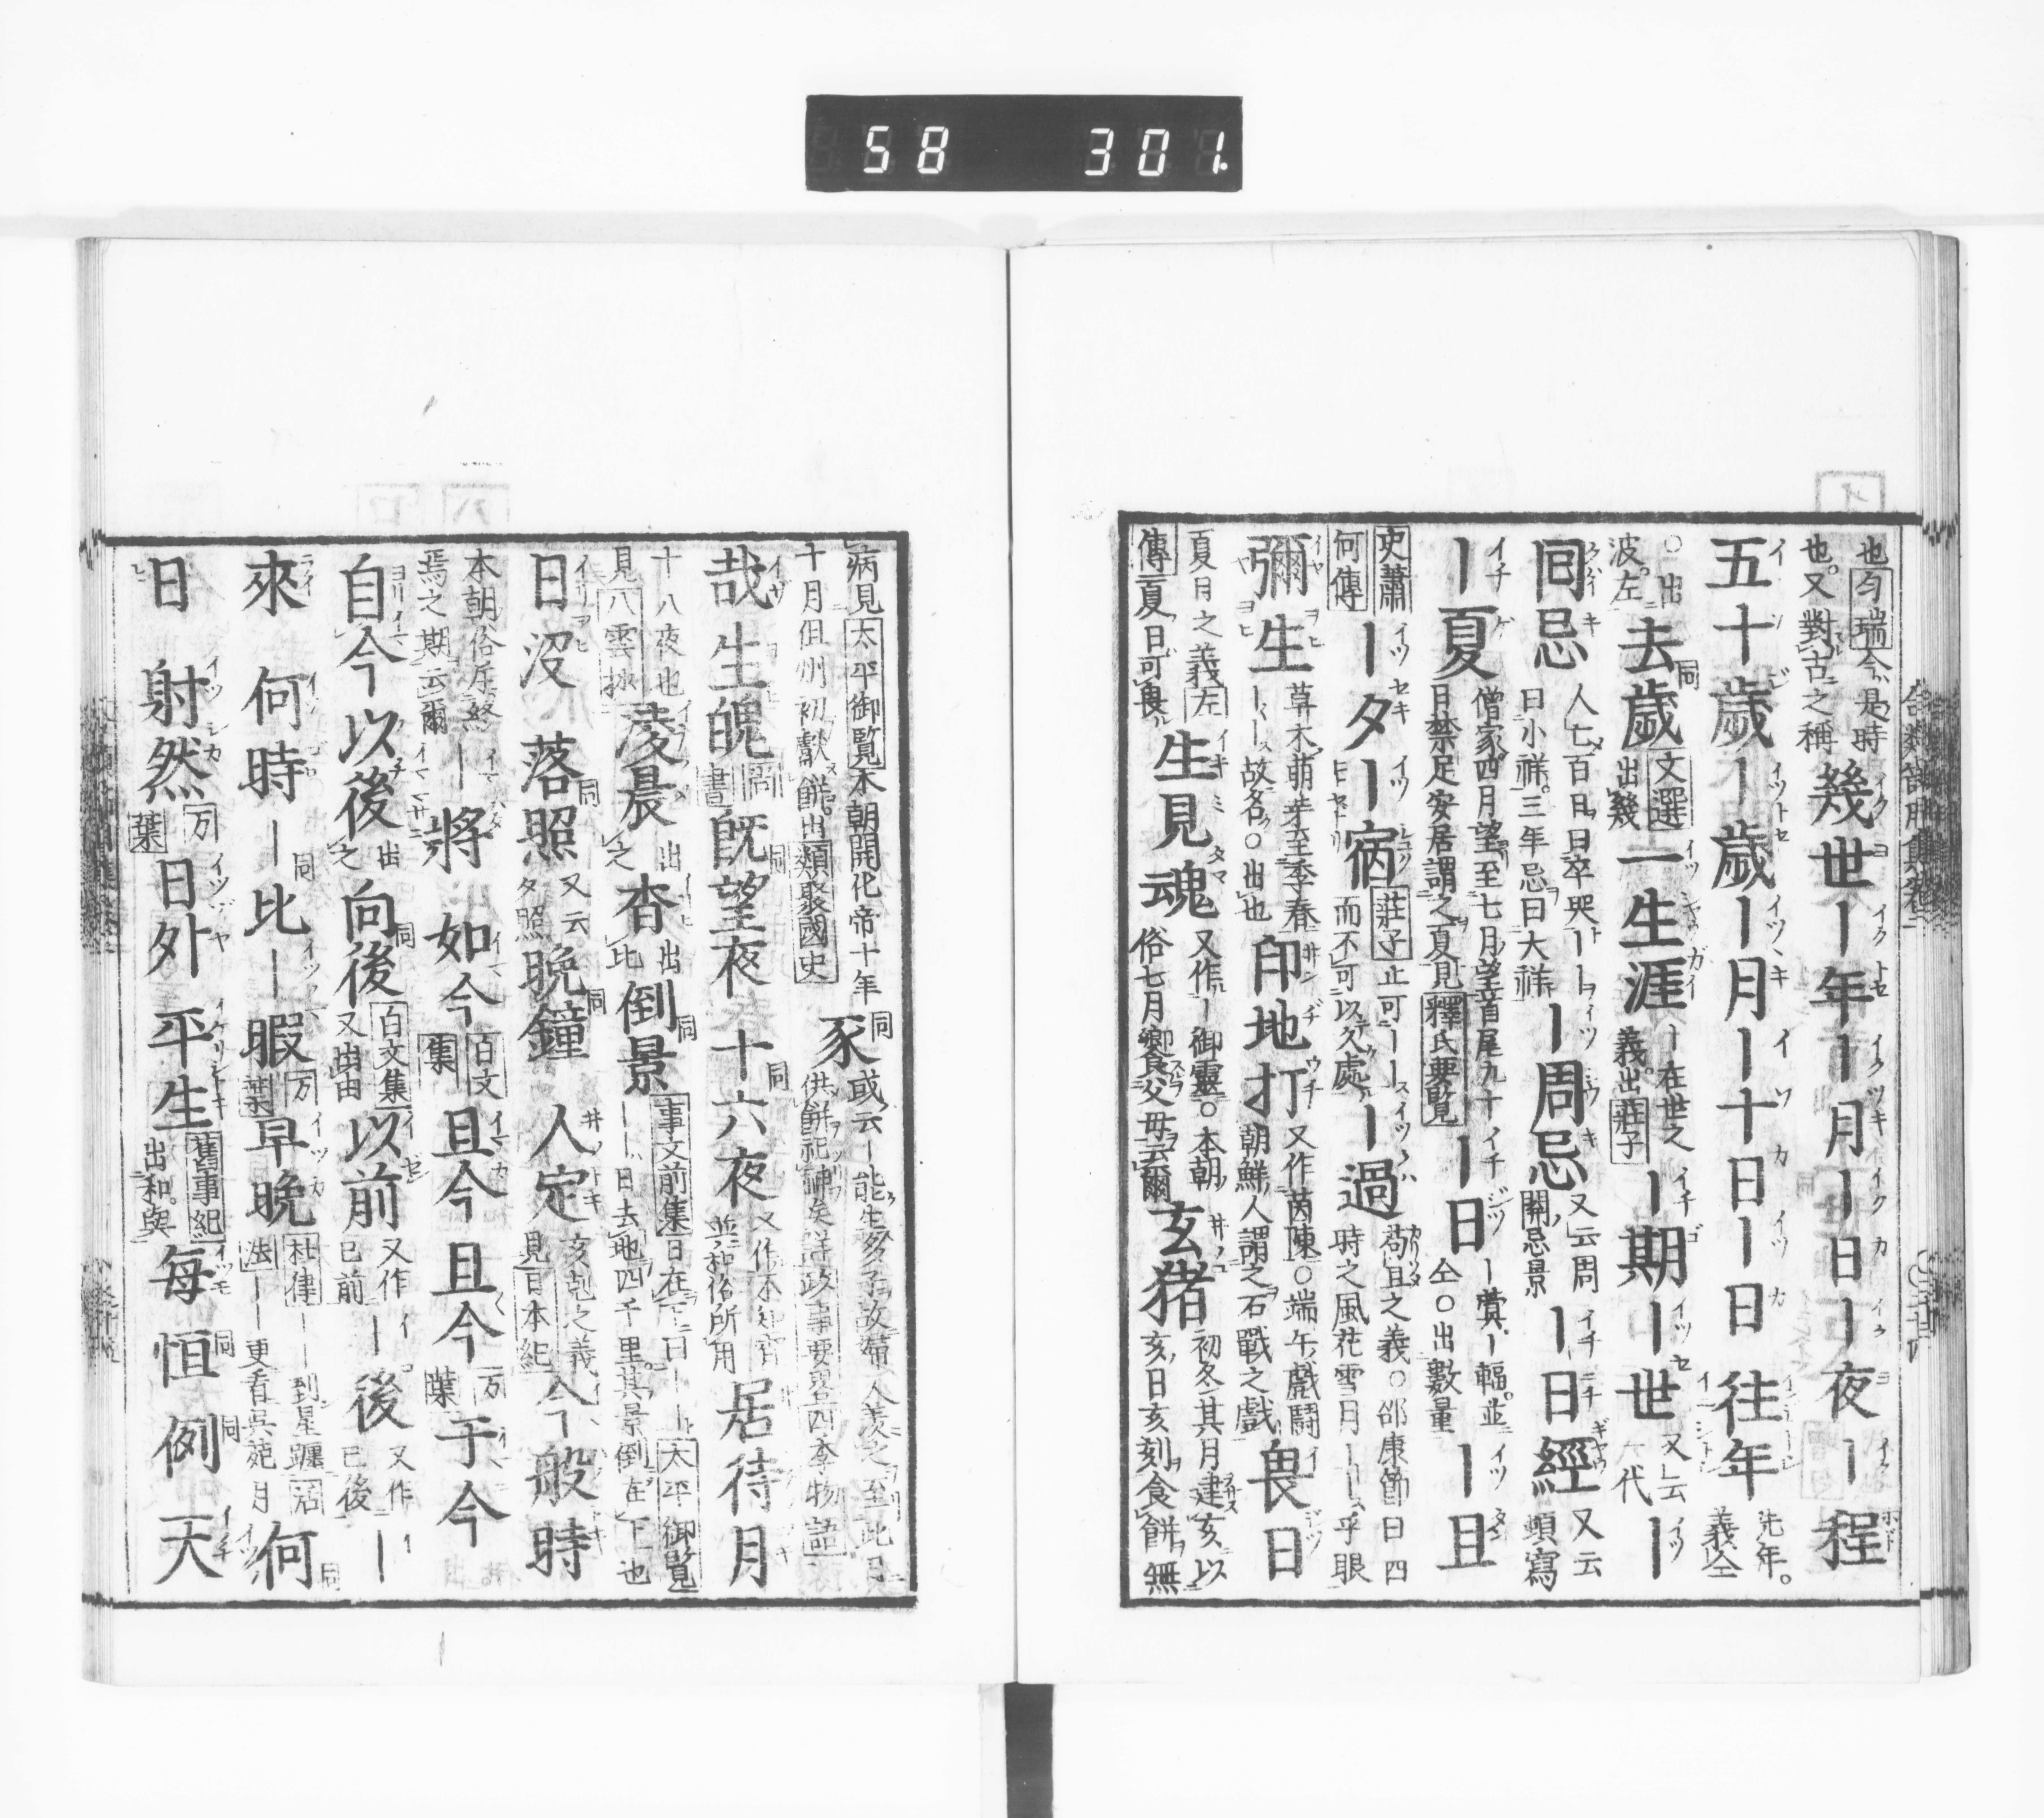 58 301
也匀瑞今是時
也又對古之稱
幾世ー年ー月ー日ー夜ー程
五十歲ー歲ー月ー十日ー日往年
先年。
義仝
○出
波左
去歲
文選
出幾
一生涯
ー在世之
義。出莊子
ー期ー世
又云
一代
ー
回忌
人亡百日曰卒哭ーー
曰小祥。三年忌曰大祥
ー周忌
又云周
關忌景
ー日經
又云
頓寫
ー夏
僧家四月望至七月望首尾九十
日禁足安居謂之夏見釋氏要覽
ー日
ー賞ー輻。並
仝○出數量
ー且
史蕭
何傳
ー夕ー宿
莊子止可ーー
而不可以久處
ー過
苟且之義○邵康節曰四
時之風花雪月ーー乎眼
彌生
草木萌芽至季春
ーー故名○出也
印地打
又作茵陳○端午戲鬪
朝鮮人謂之石戰之戲
畏日
夏日之義左
傳夏日可畏
生見魂
又作ー御靈○本朝
俗七月饗父母云爾
玄猪
初冬其月建亥以
亥日亥刻食餅無
病見太平御覽本朝開化帝十年
十月但州初獻餅。出類聚國史
豕
或云ー能生多子故婦人羨之至此月
供餅祀神矣詳政事要畧四季物語
哉生魄
尚
書
既望夜 十六夜
又作不知宵
並和俗所用
居待月
十八夜也
見八雲抄
淩晨
出
之
杳
出
比
倒景
事文前集日在下曰ー上太平御覽
ーー日去地四千里。其景倒在下也
日沒 落照
又云
夕照
晩鐘 人定
亥剋之義
見日本紀
今般時
本朝俗斥終
焉之期云爾
ー將 如今
白文
集
且今 且今
万
葉
于今
自今以後
出
之
向後
白文集
又出由
以前
又作
已前
ー後
又作
已後
ー
來 何時ー比ー暇
万
葉
早晩
杜律ーー到星躔活
法ーー更看吳苑月
何
日 射然
万
葉
日外 平生
舊事紀
出和。與
每 恒 例 一天